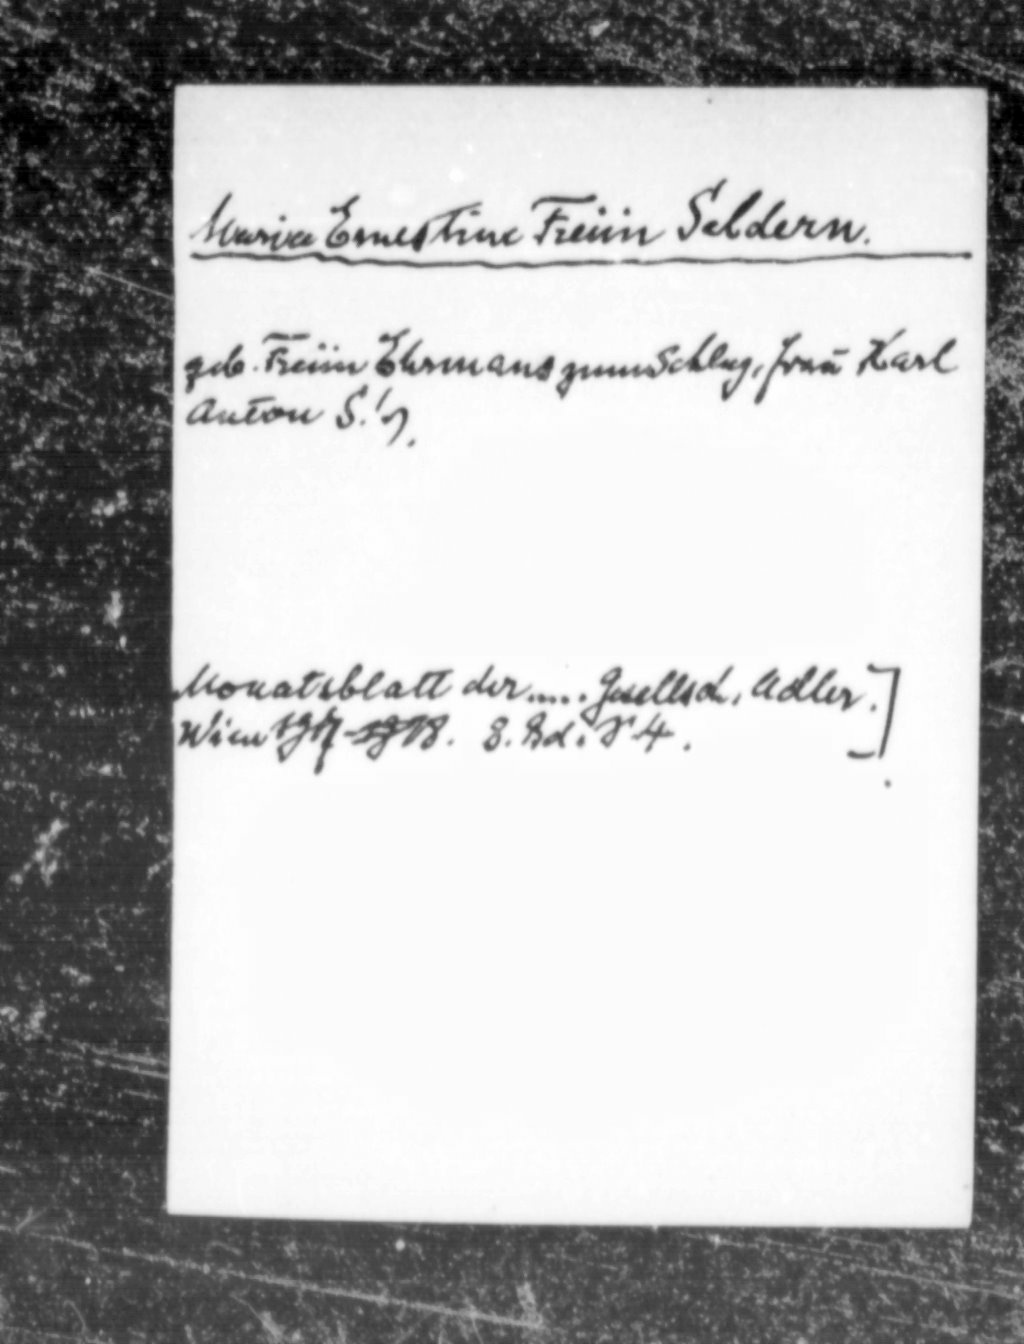 Maria Ernestine Freiin Seldern.
geb. Freiin Ehrmans zum Schlug, Frau Karl
Anton S.'s.
Monatsblatt der..... Gesellsch. Adler.]
Wien 1917-1918. 8. Bd. S 4.